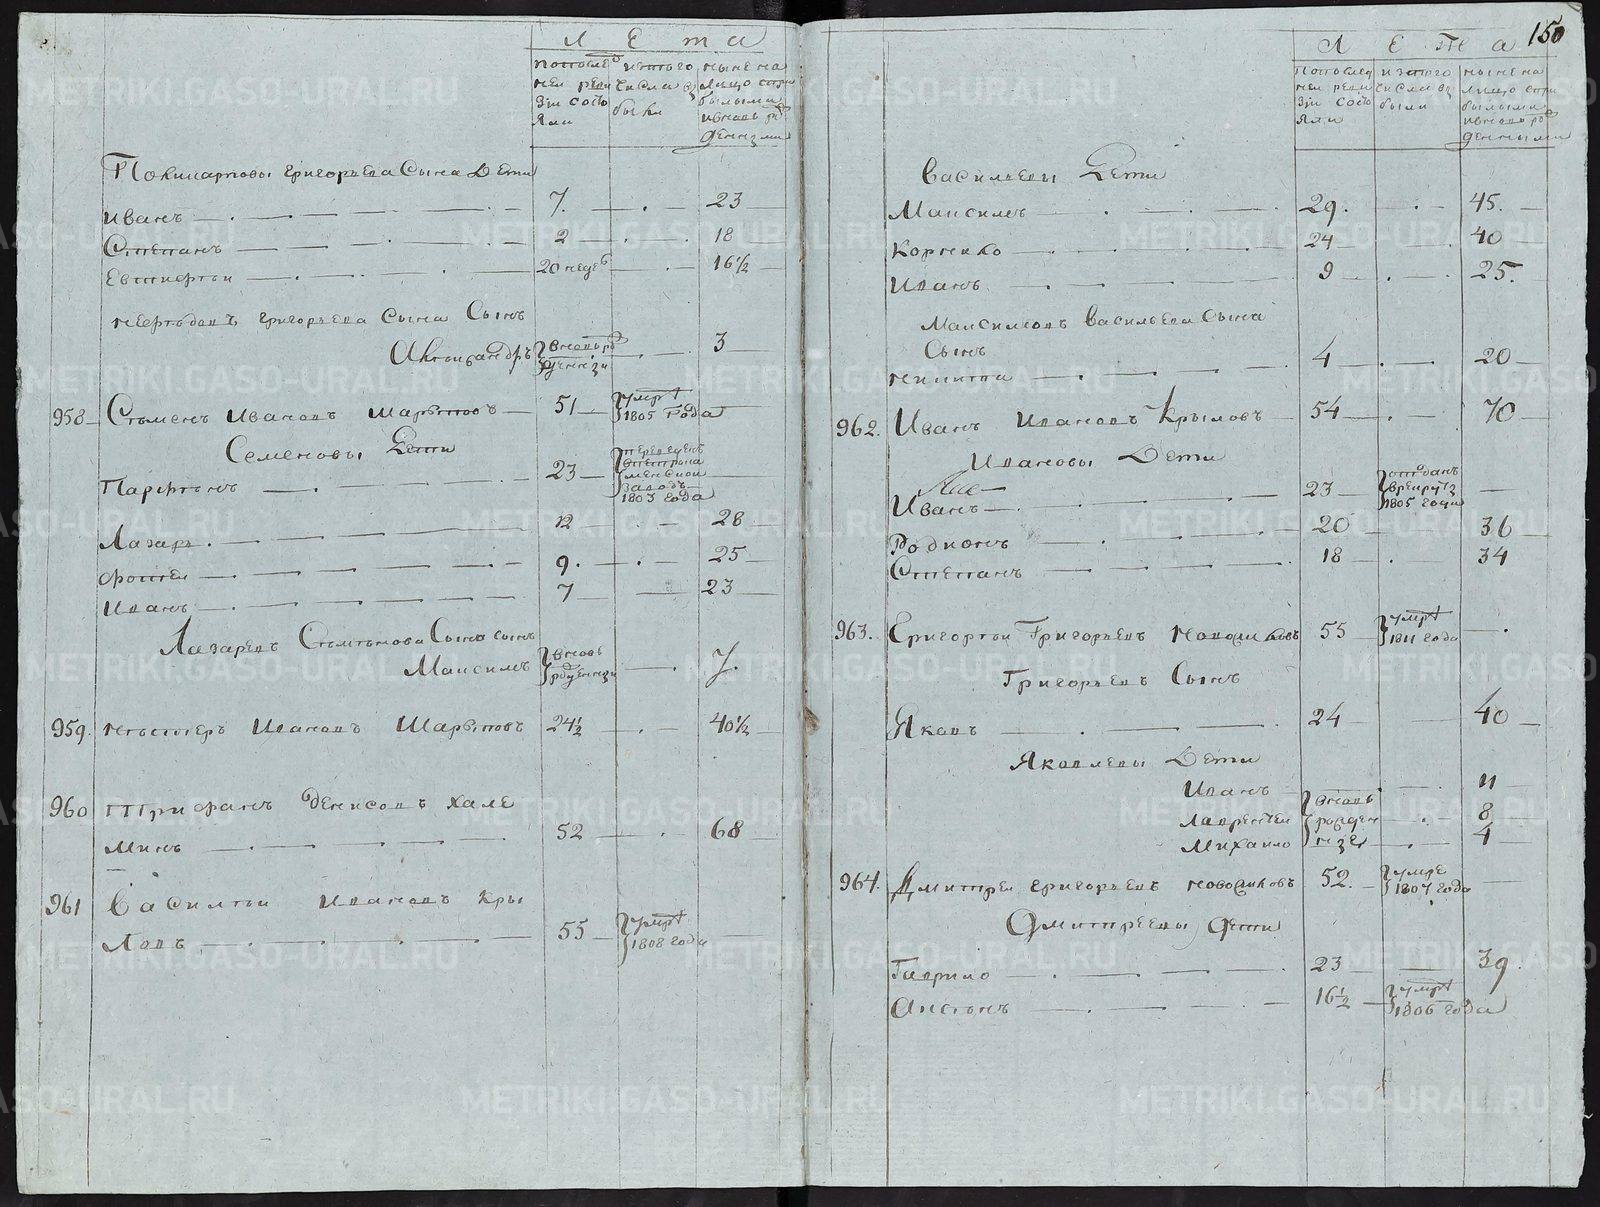 Лета
по после
ней реви
зіи состо
яли
изтого
числа вы
были
ныне на
лицо спри
былыми
ивновь ро
денными
Поликарповы григорьева Сына Дети
Иванъ 7. 23
Степанъ 2 18
Евтифеи 20 недѣ 16½
григорьева Сына Сынъ
Александръ вновь ро
жденни 3
958 Семенъ Ивановъ 51 умре
1805 года
Семеновы Дети
Парфенъ 23 переведенъ
заводъ
1803 года
Лазарь 12 28
Фотеи 9. 25
Иванъ 7 23
Лазаревъ Семенова Сына сынъ
Максимъ вновь
рожденни 7.
959. Несторъ Ивановъ 24½ 40½
960 Трифанъ Денисовъ Хале
минъ 52 68
961 Василеи Ивановъ Кры
ловъ 55 умре
1808 года
150
Лета
по послед
ней реви
зіи состо
яли
изтого
числа вы
были
ныне на
лицо спри
былыми
ивновь ро
денными
Васильевы Дети
Максимъ 29. 45.
Корнило 24 40
Иванъ 9 25.
Максимовъ Васильева Сына
Сынъ
Никита 4 20
962. Иванъ Ивановъ Крыловъ 54 70
Ивановы Дети
Иванъ 23 отданъ
врекруты
1805 года
Родионъ 20 36
Степанъ 18 34
963. Григореи Григорьевъ Новоселовъ 55 умре
1811 года
Григорьевъ Сынъ
Яковъ 24 40
Яковлевы Дети
Иванъ 11
Лаврентеи вновь
рожден
ные 8
Михаило 4
964. Дмитреи григорьевъ 52. умре
1807 года
Дмитреевы Дети
Гаврило 23 39.
Антонъ 16½ умре
1806 года
METRIKI.GASO-URAL.RU